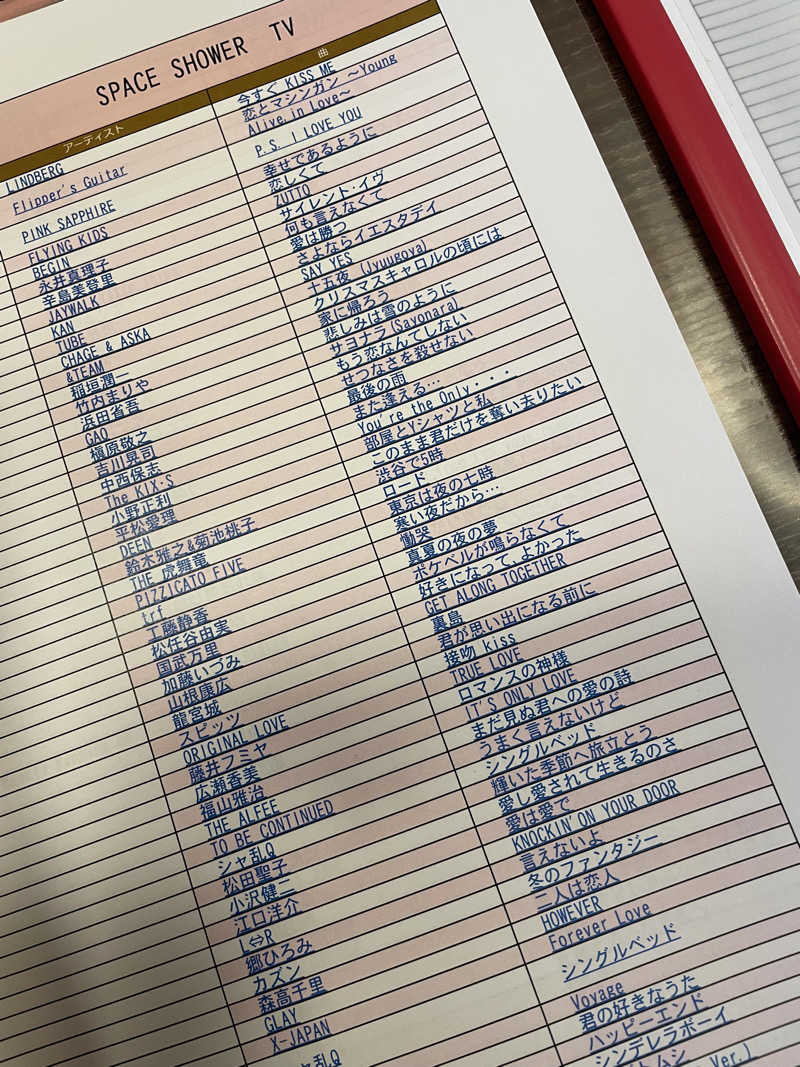 SPACE SHOWER TV
アーティスト
LINDBERG
Flipper's Guitar
PINK SAPPHIRE
FLYING KIDS
BEGIN
永井真理子
辛島美登里
JAYWALK
KAN
TUBE
CHAGE & ASKA
&TEAM
稲垣潤一
竹内まりや
浜田省吾
GAO
槇原敬之
吉川晃司
中西保志
The KIX-S
小野正利
平松愛理
DEEN
鈴木雅之&菊池桃子
THE 虎舞竜
PIZZICATO FIVE
trf
工藤静香
松任谷由実
国武万里
加藤いづみ
山根康広
龍宮城
スピッツ
ORIGINAL LOVE
藤井フミヤ
広瀬香美
福山雅治
THE ALFEE
TO BE CONTINUED
シャ乱Q
松田聖子
小沢健二
江口洋介
L⇔R
郷ひろみ
カズン
森高千里
GLAY
X-JAPAN
乱Q
曲
今すぐ KISS ME
恋とマシンガン ～Young
Alive, in Love～
P.S. I LOVE YOU
幸せであるように
恋しくて
ZUTTO
サイレント・イヴ
何も言えなくて
愛は勝つ
さよならイエスタデイ
SAY YES
十五夜 (Jyuugoya)
クリスマスキャロルの頃には
家に帰ろう
悲しみは雪のように
サヨナラ(Sayonara)
もう恋なんてしない
せつなさを殺せない
最後の雨
また逢える…
You're the Only・・・
部屋とYシャツと私
このまま君だけを奪い去りたい
渋谷で5時
ロード
東京は夜の七時
寒い夜だから…
慟哭
真夏の夜の夢
ポケベルが鳴らなくて
好きになって、よかった
GET ALONG TOGETHER
裏島
君が思い出になる前に
接吻 kiss
TRUE LOVE
ロマンスの神様
IT'S ONLY LOVE
まだ見ぬ君への愛の詩
うまく言えないけど
シングルベッド
輝いた季節へ旅立とう
愛し愛されて生きるのさ
愛は愛で
KNOCKIN'ON YOUR DOOR
言えないよ
冬のファンタジー
二人は恋人
HOWEVER
Forever Love
シングルベッド
Voyage
君の好きなうた
ハッピーエンド
シンデレラボーイ
Ver.)